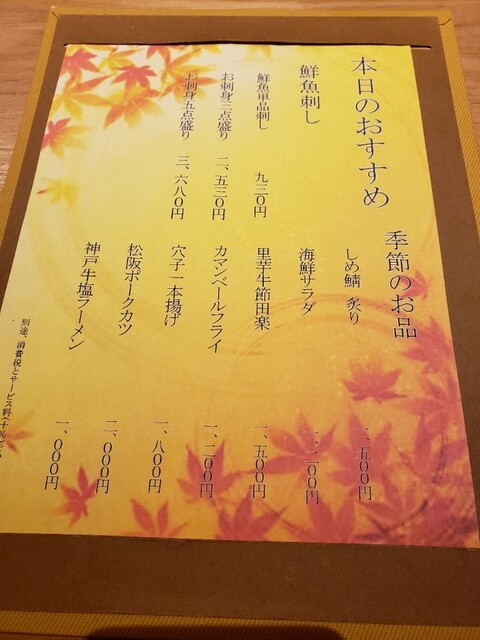 本日のおすすめ
鮮魚刺し
鮮魚単品刺し 九三〇円
お刺身三点盛り 二、五三〇円
お刺身五点盛り 三、六八〇円
季節のお品
しめ鯖 炙り 一、五〇〇円
海鮮サラダ 一、二〇〇円
里芋牛節田楽 一、五〇〇円
カマンベールフライ 一、二〇〇円
穴子一本揚げ 一、八〇〇円
松阪ポークカツ 二、〇〇〇円
神戸牛塩ラーメン 一、〇〇〇円
別途、消費税とサービス料(十%)